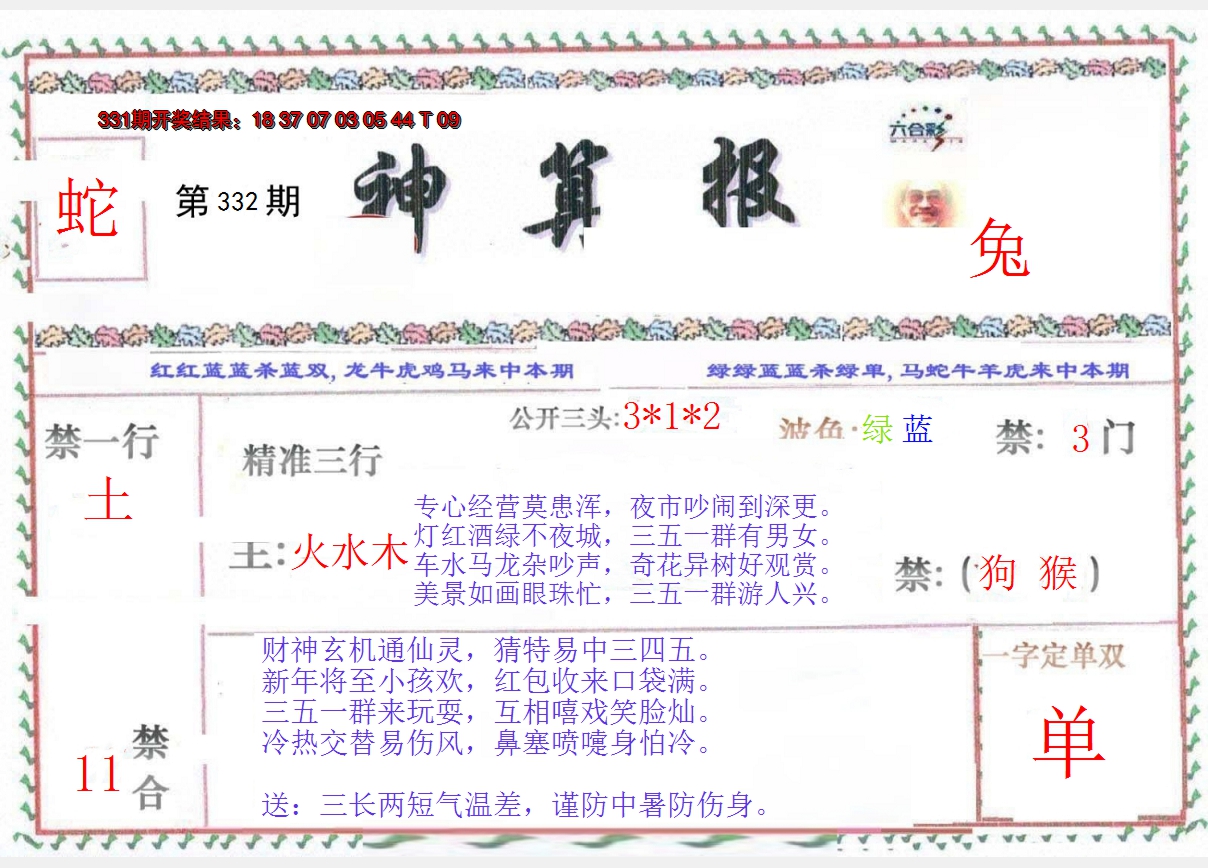 331期开奖结果：18 37 07 03 05 44 T 09
六合彩
蛇
第 332 期
神算报
兔
红红蓝蓝杀蓝双,龙牛虎鸡马来中本期
绿绿蓝蓝杀绿单,马蛇牛羊虎来中本期
禁一行
土
精准三行
主:火水木
公开三头:3*1*2
波色·绿 蓝
禁: 3门
专心经营莫患浑，夜市吵闹到深更。
灯红酒绿不夜城，三五一群有男女。
车水马龙杂吵声，奇花异树好观赏。
美景如画眼珠忙，三五一群游人兴。
禁:(狗 猴)
财神玄机通仙灵，猜特易中三四五。
新年将至小孩欢，红包收来口袋满。
三五一群来玩耍，互相嘻戏笑脸灿。
冷热交替易伤风，鼻塞喷嚏身怕冷。
送：三长两短气温差，谨防中暑防伤身。
11
禁合
一字定单双
单